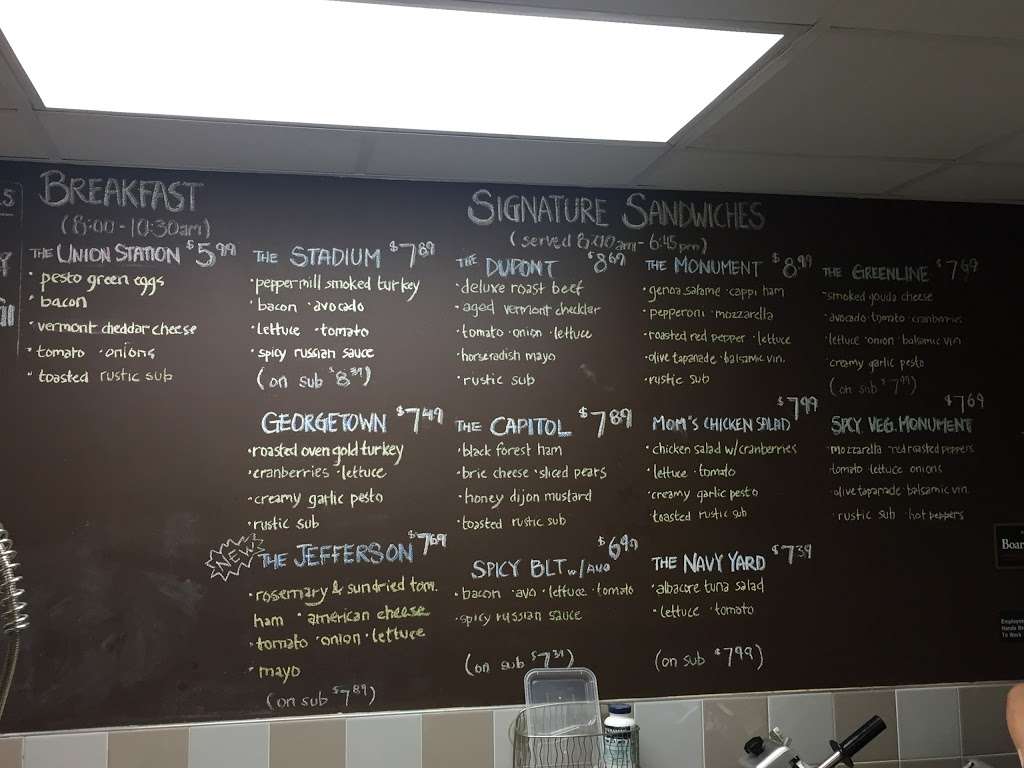 BREAKFAST
(8:00 - 10:30am)
THE UNION STATION $5.99
· pesto green eggs
· bacon
· vermont cheddar cheese
· tomato · onions
· toasted rustic sub
SIGNATURE SANDWICHES
(served 8:00am - 6:45pm)
THE STADIUM $7.89
· peppermill smoked turkey
· bacon · avocado
· lettuce · tomato
· spicy russian sauce
(on sub $8.39)
THE DUPONT $8.69
· deluxe roast beef
· aged vermont cheddar
· tomato · onion · lettuce
· horseradish mayo
· rustic sub
THE MONUMENT $8.99
· genoa salame · cappi ham
· pepperoni · mozzarella
· roasted red pepper · lettuce
· olive tapanade · balsamic vin.
· rustic sub
THE GREENLINE $7.69
· smoked gouda cheese
· avocado · tomato · cranberries
· lettuce · onion · balsamic vin
· creamy garlic pesto
(on sub $7.99)
GEORGETOWN $7.49
· roasted oven gold turkey
· cranberries · lettuce
· creamy garlic pesto
· rustic sub
THE CAPITOL $7.89
· black forest ham
· brie cheese · sliced pears
· honey dijon mustard
· toasted rustic sub
MOM'S CHICKEN SALAD $7.99
· chicken salad w/cranberries
· lettuce · tomato
· creamy garlic pesto
· toasted rustic sub
SPICY VEG. MONUMENT $7.69
· mozzarella · red roasted peppers
· tomato · lettuce · onions
· olive tapanade · balsamic vin.
· rustic sub · hot peppers
NEW
THE JEFFERSON $7.69
· rosemary & sundried tom.
ham · american cheese
· tomato · onion · lettuce
· mayo
(on sub $7.89)
SPICY BLT w/ Avo $6.99
· bacon · avo · lettuce · tomato
· spicy russian sauce
(on sub $7.39)
THE NAVY YARD $7.39
· albacore tuna salad
· lettuce · tomato
(on sub $7.99)
Boar
Employee
Hands Be
To Work